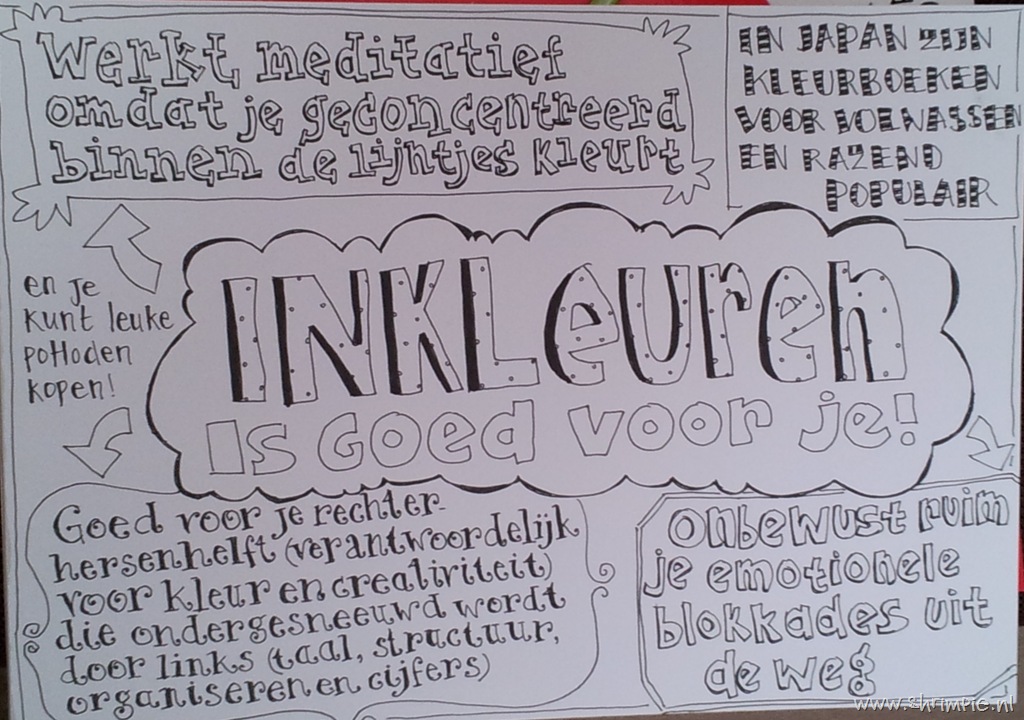 Werkt meditatief
omdat je geconcentreerd
binnen de lijntjes kleurt
IN JAPAN ZIJN
KLEURBOEKEN
VOOR VOLWASSEN
EN RAZEND
POPULAIR
en je
kunt leuke
potloden
kopen!
INKLeuren
IS GOED VOOR je!
Goed voor je rechter-
hersenhelft (verantwoordelijk
voor kleur en creativiteit)
die ondergesneeuwd wordt
door links (taal, structuur,
organiseren en cijfers)
Onbewust ruim
je emotionele
blokkades uit
de weg
www.shrimpie.nl